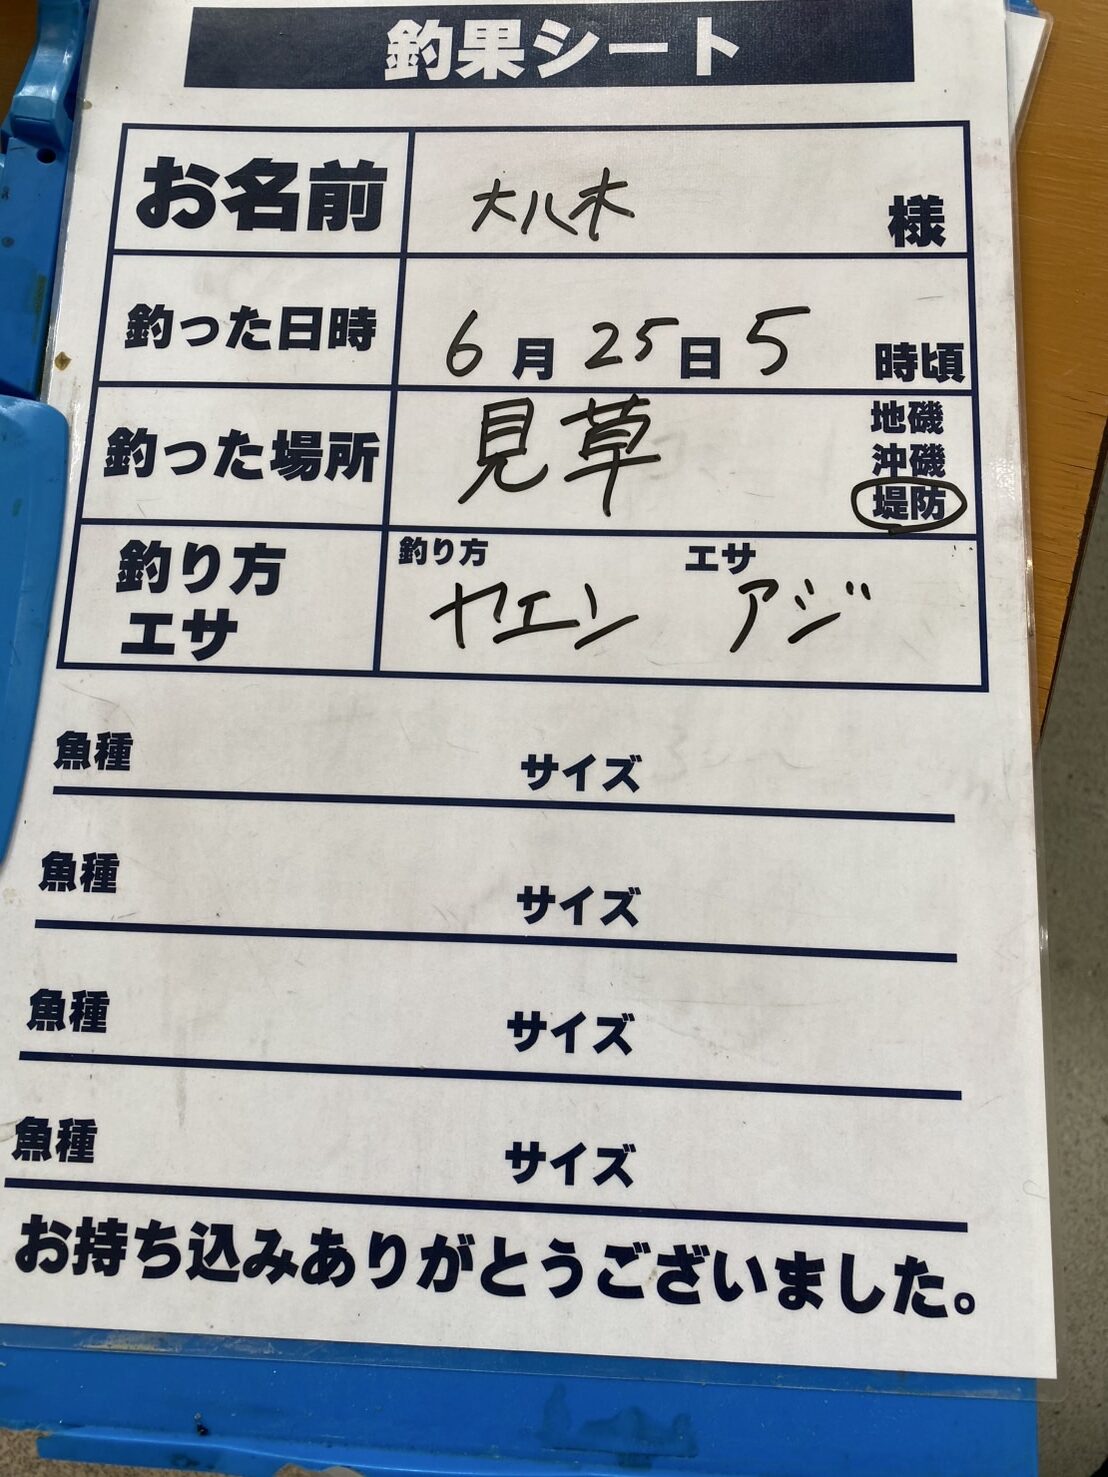 釣果シート
お名前 大八木 様
釣った日時 6月25日5 時頃
釣った場所 見草 地磯
沖磯
堤防
釣り方 エサ 釣り方 ヤエン エサ アジ
魚種 サイズ
魚種 サイズ
魚種 サイズ
魚種 サイズ
お持ち込みありがとうございました。